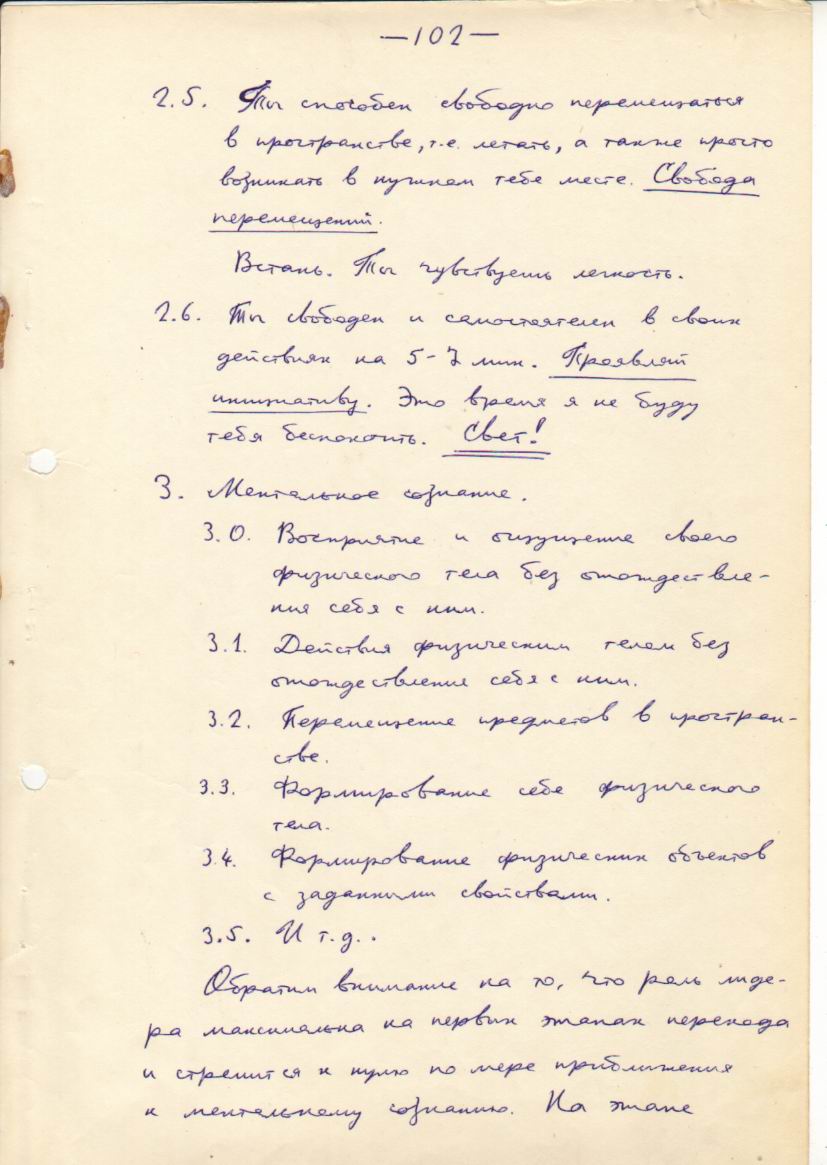 —102—
2.5. Ты способен свободно перемещаться
в пространстве, т.е. летать, а также просто
возникать в нужном тебе месте. Свобода
перемещений.
Встань. Ты чувствуешь легкость.
2.6. Ты свободен и самостоятелен в своих
действиях на 5-7 мин. Проявляй
инициативу. Это время я не буду
тебя беспокоить. Свет!
3. Ментальное сознание.
3.0. Восприятие и ощущение своего
физического тела без отождествле-
ния себя с ним.
3.1. Действия физическим телом без
отождествление себя с ним.
3.2. Перемещение предметов в простран-
стве.
3.3. Формирование себе физического
тела.
3.4. Формирование физических объектов
с заданными свойствами.
3.5. И т.д..
Обратим внимание на то, что роль лиде-
ра максимальна на первых этапах перехода
и стремится к нулю по мере приближения
к ментальному сознанию. На этапе